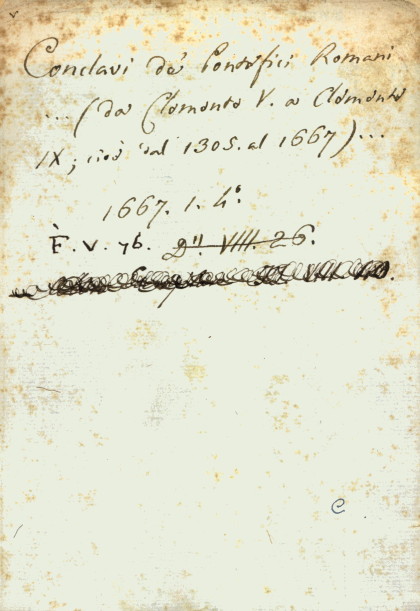 Conclavi de' Pontefici Romani
... (da Clemente V. a Clemente
IX; cioè dal 1305. al 1667)...
1667. 1. 4°
È. V. 76. 2.11. VIII. 26.
C